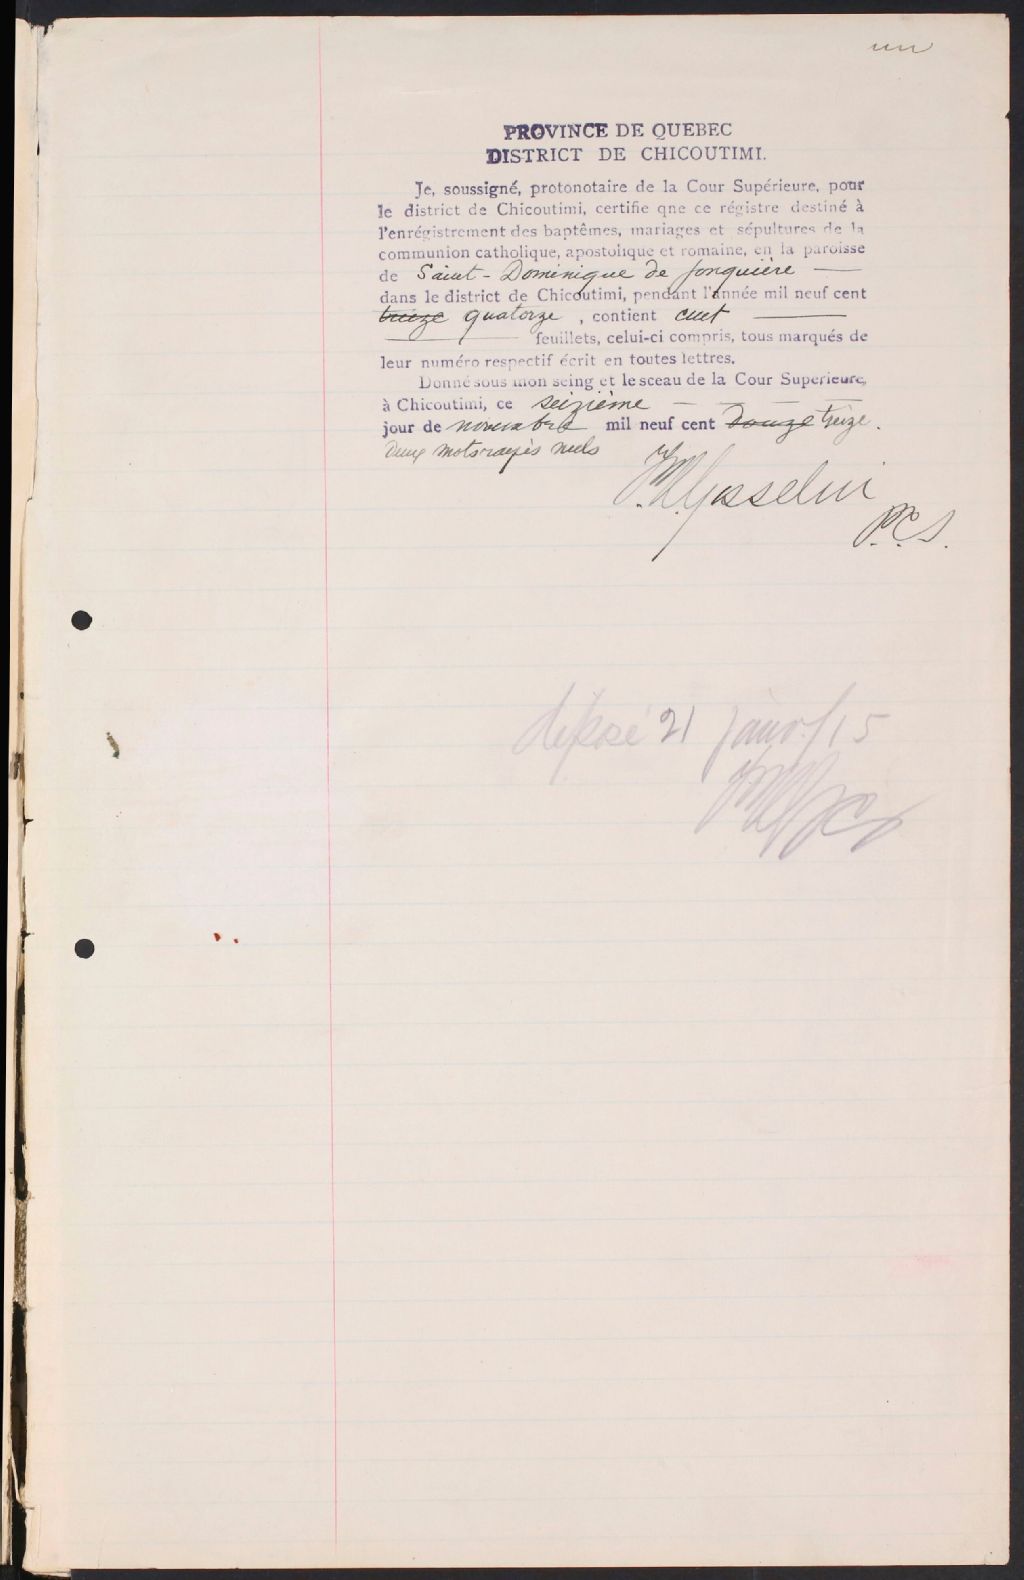 un
PROVINCE DE QUEBEC
DISTRICT DE CHICOUTIMI.
Je, soussigné, protonotaire de la Cour Supérieure, pour
le district de Chicoutimi, certifie qne ce régistre destiné à
l'enrégistrement des baptêmes, mariages et sépultures de la
communion catholique, apostolique et romaine, en la paroisse
de Saint-Dominique de Jonquière —
dans le district de Chicoutimi, pendant l'année mil neuf cent
treize quatorze, contient cent —
— feuillets, celui-ci compris, tous marqués de
leur numéro respectif écrit en toutes lettres.
Donné sous mon seing et le sceau de la Cour Superieure,
à Chicoutimi, ce seizième — — —
jour de novembre mil neuf cent Douze treize.
Deux mots rayés nuls
Gosselin
P.C.S.
déposé 21 janv./15